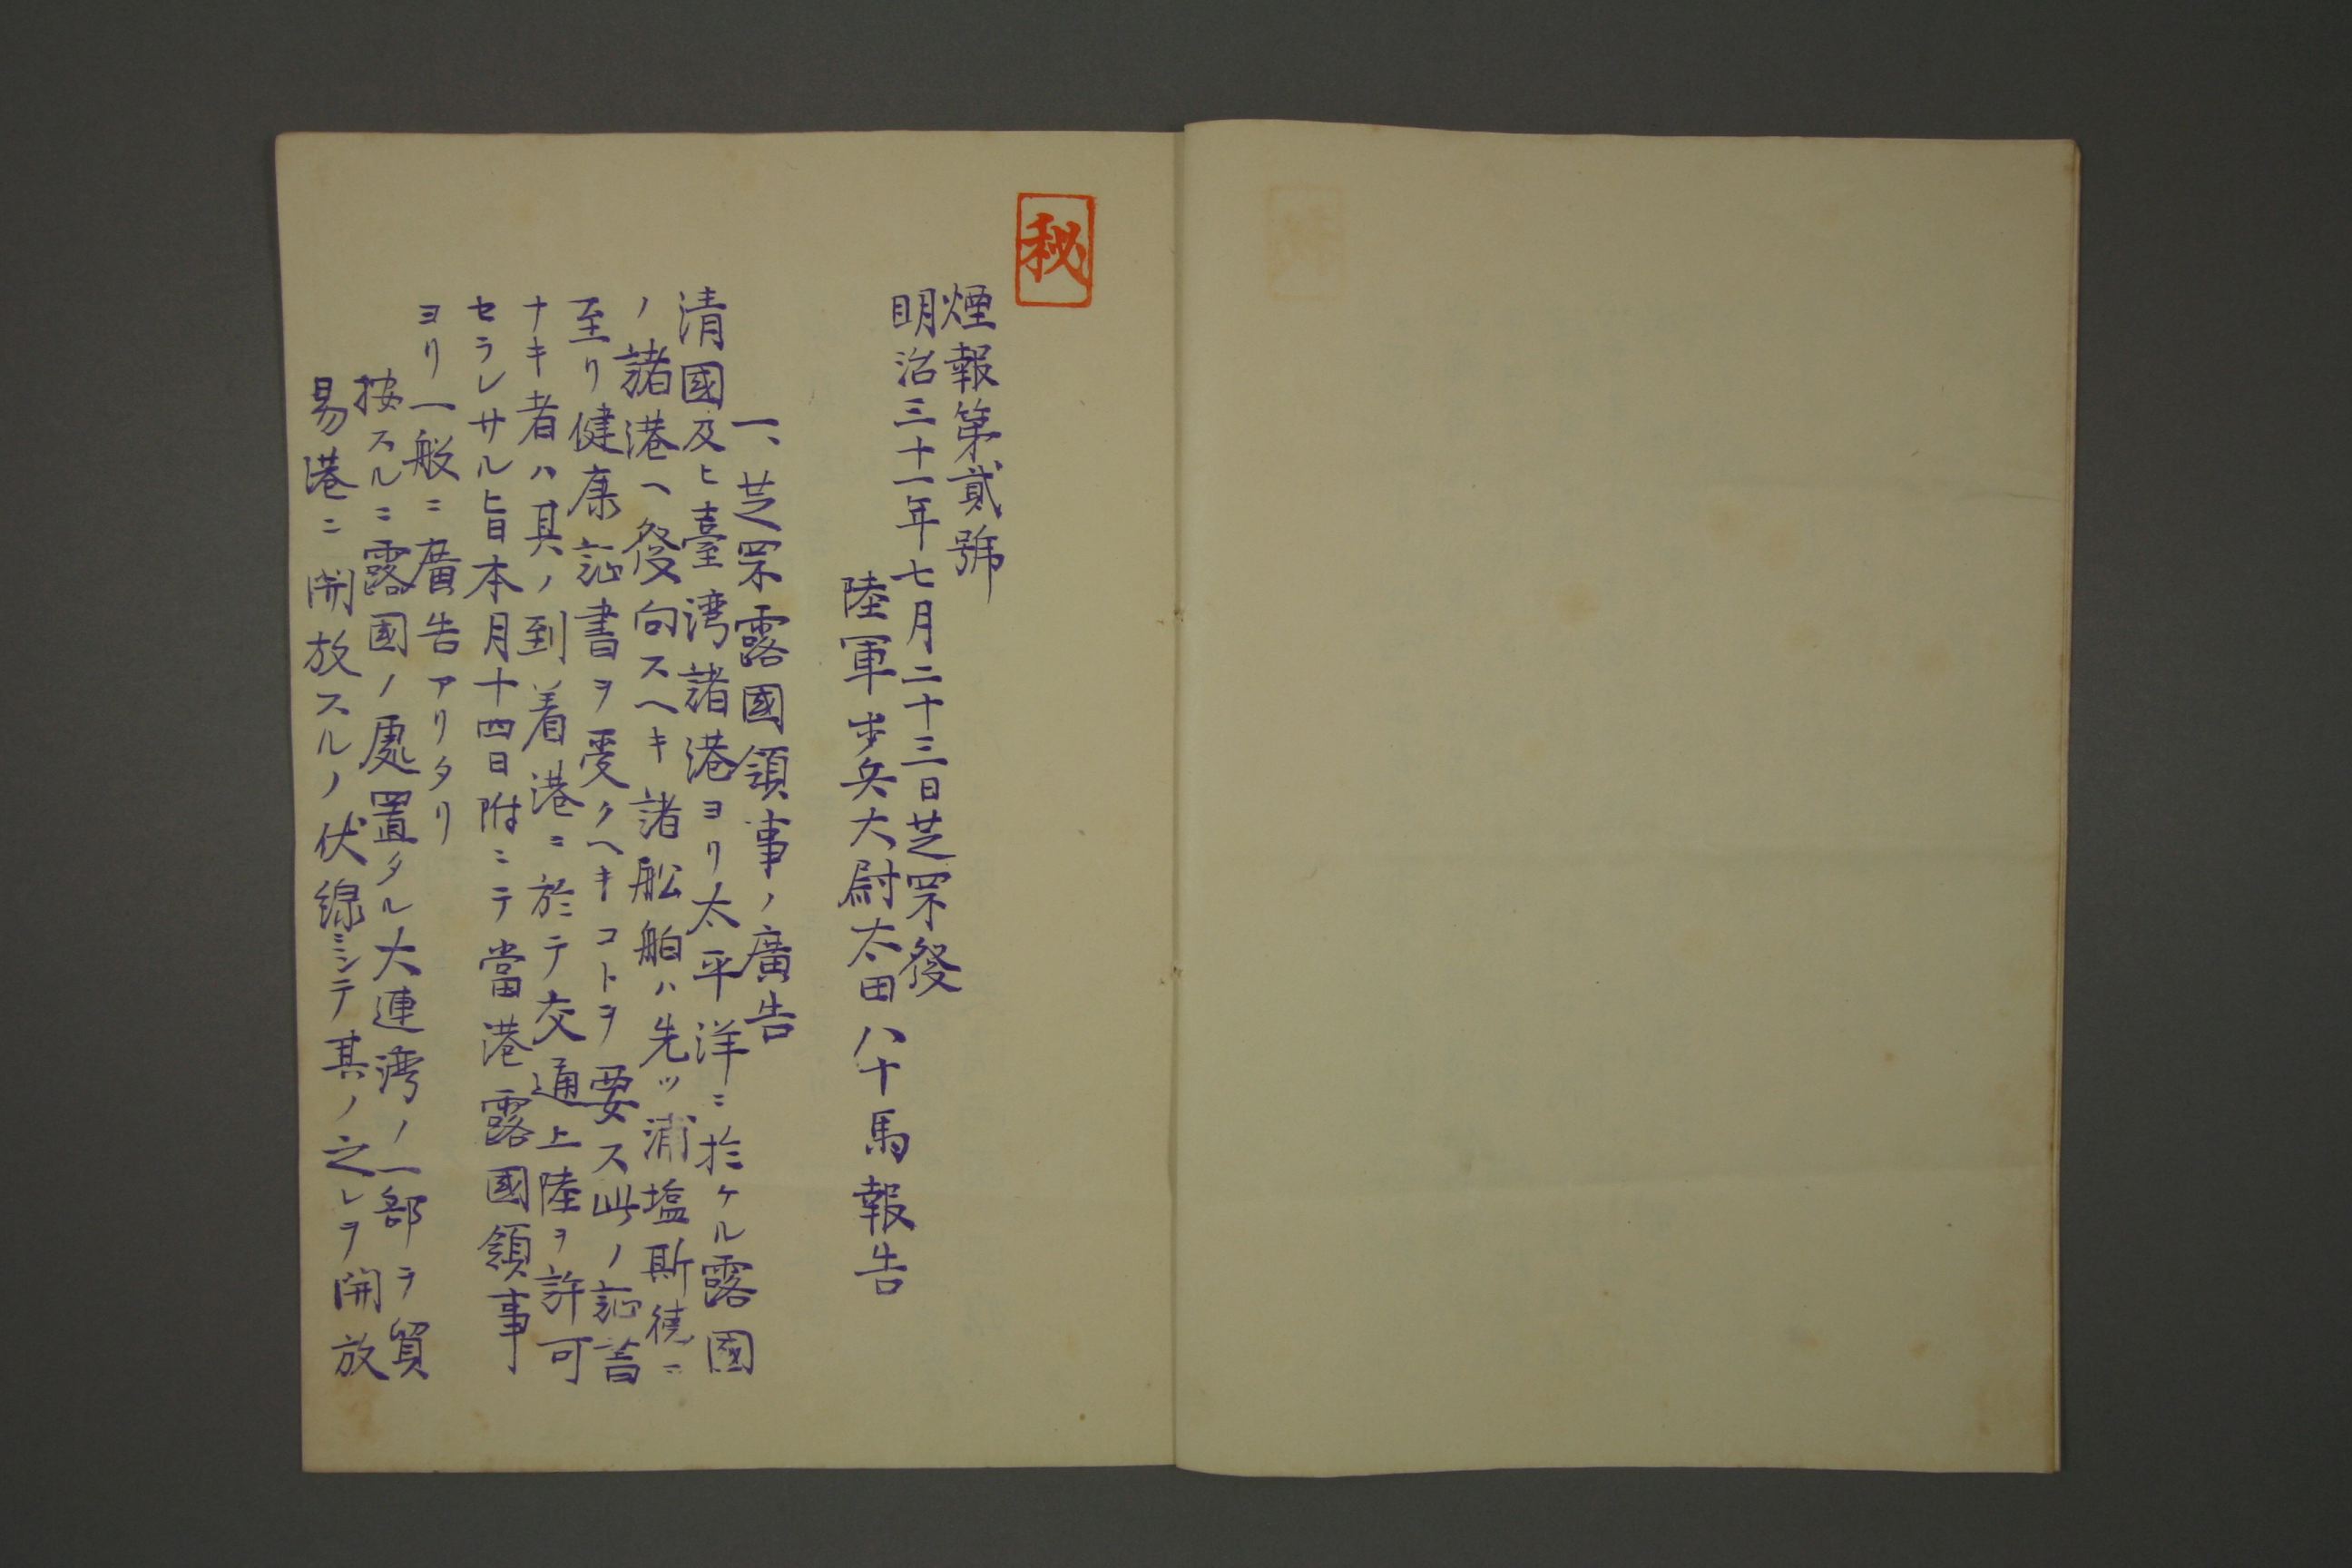 秘
煙報第貳號
明治三十一年七月二十三日芝罘發
陸軍歩兵大尉太田八十馬報告
一、芝罘露國領事ノ廣告
清國及ヒ臺湾諸港ヨリ太平洋ニ於ケル露國
ノ諸港ヘ發向スヘキ諸舩舶ハ先ツ浦塩斯徳ニ
至リ健康証書ヲ受クヘキコトヲ要ス此ノ証書
ナキ者ハ其ノ到着港ニ於テ交通上陸ヲ許可
セラレサル旨本月十四日附ニテ當港露國領事
ヨリ一般ニ廣告アリタリ
按スルニ露國ノ處置タル大連湾ノ一部ヲ貿
易港ニ開放スルノ伏線ニシテ其ノ之レヲ開放